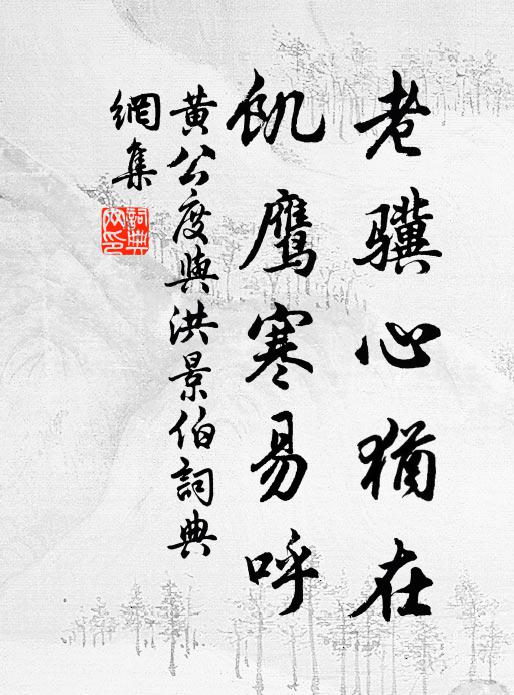 老驥心猶在
飢鹰寒易呼
黄公度與洪景伯詞典
網集
詞典
网印